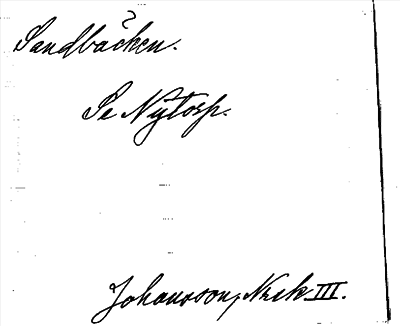 Sandbäcken.
Se Nytorp.
Johansson, Nrik III.